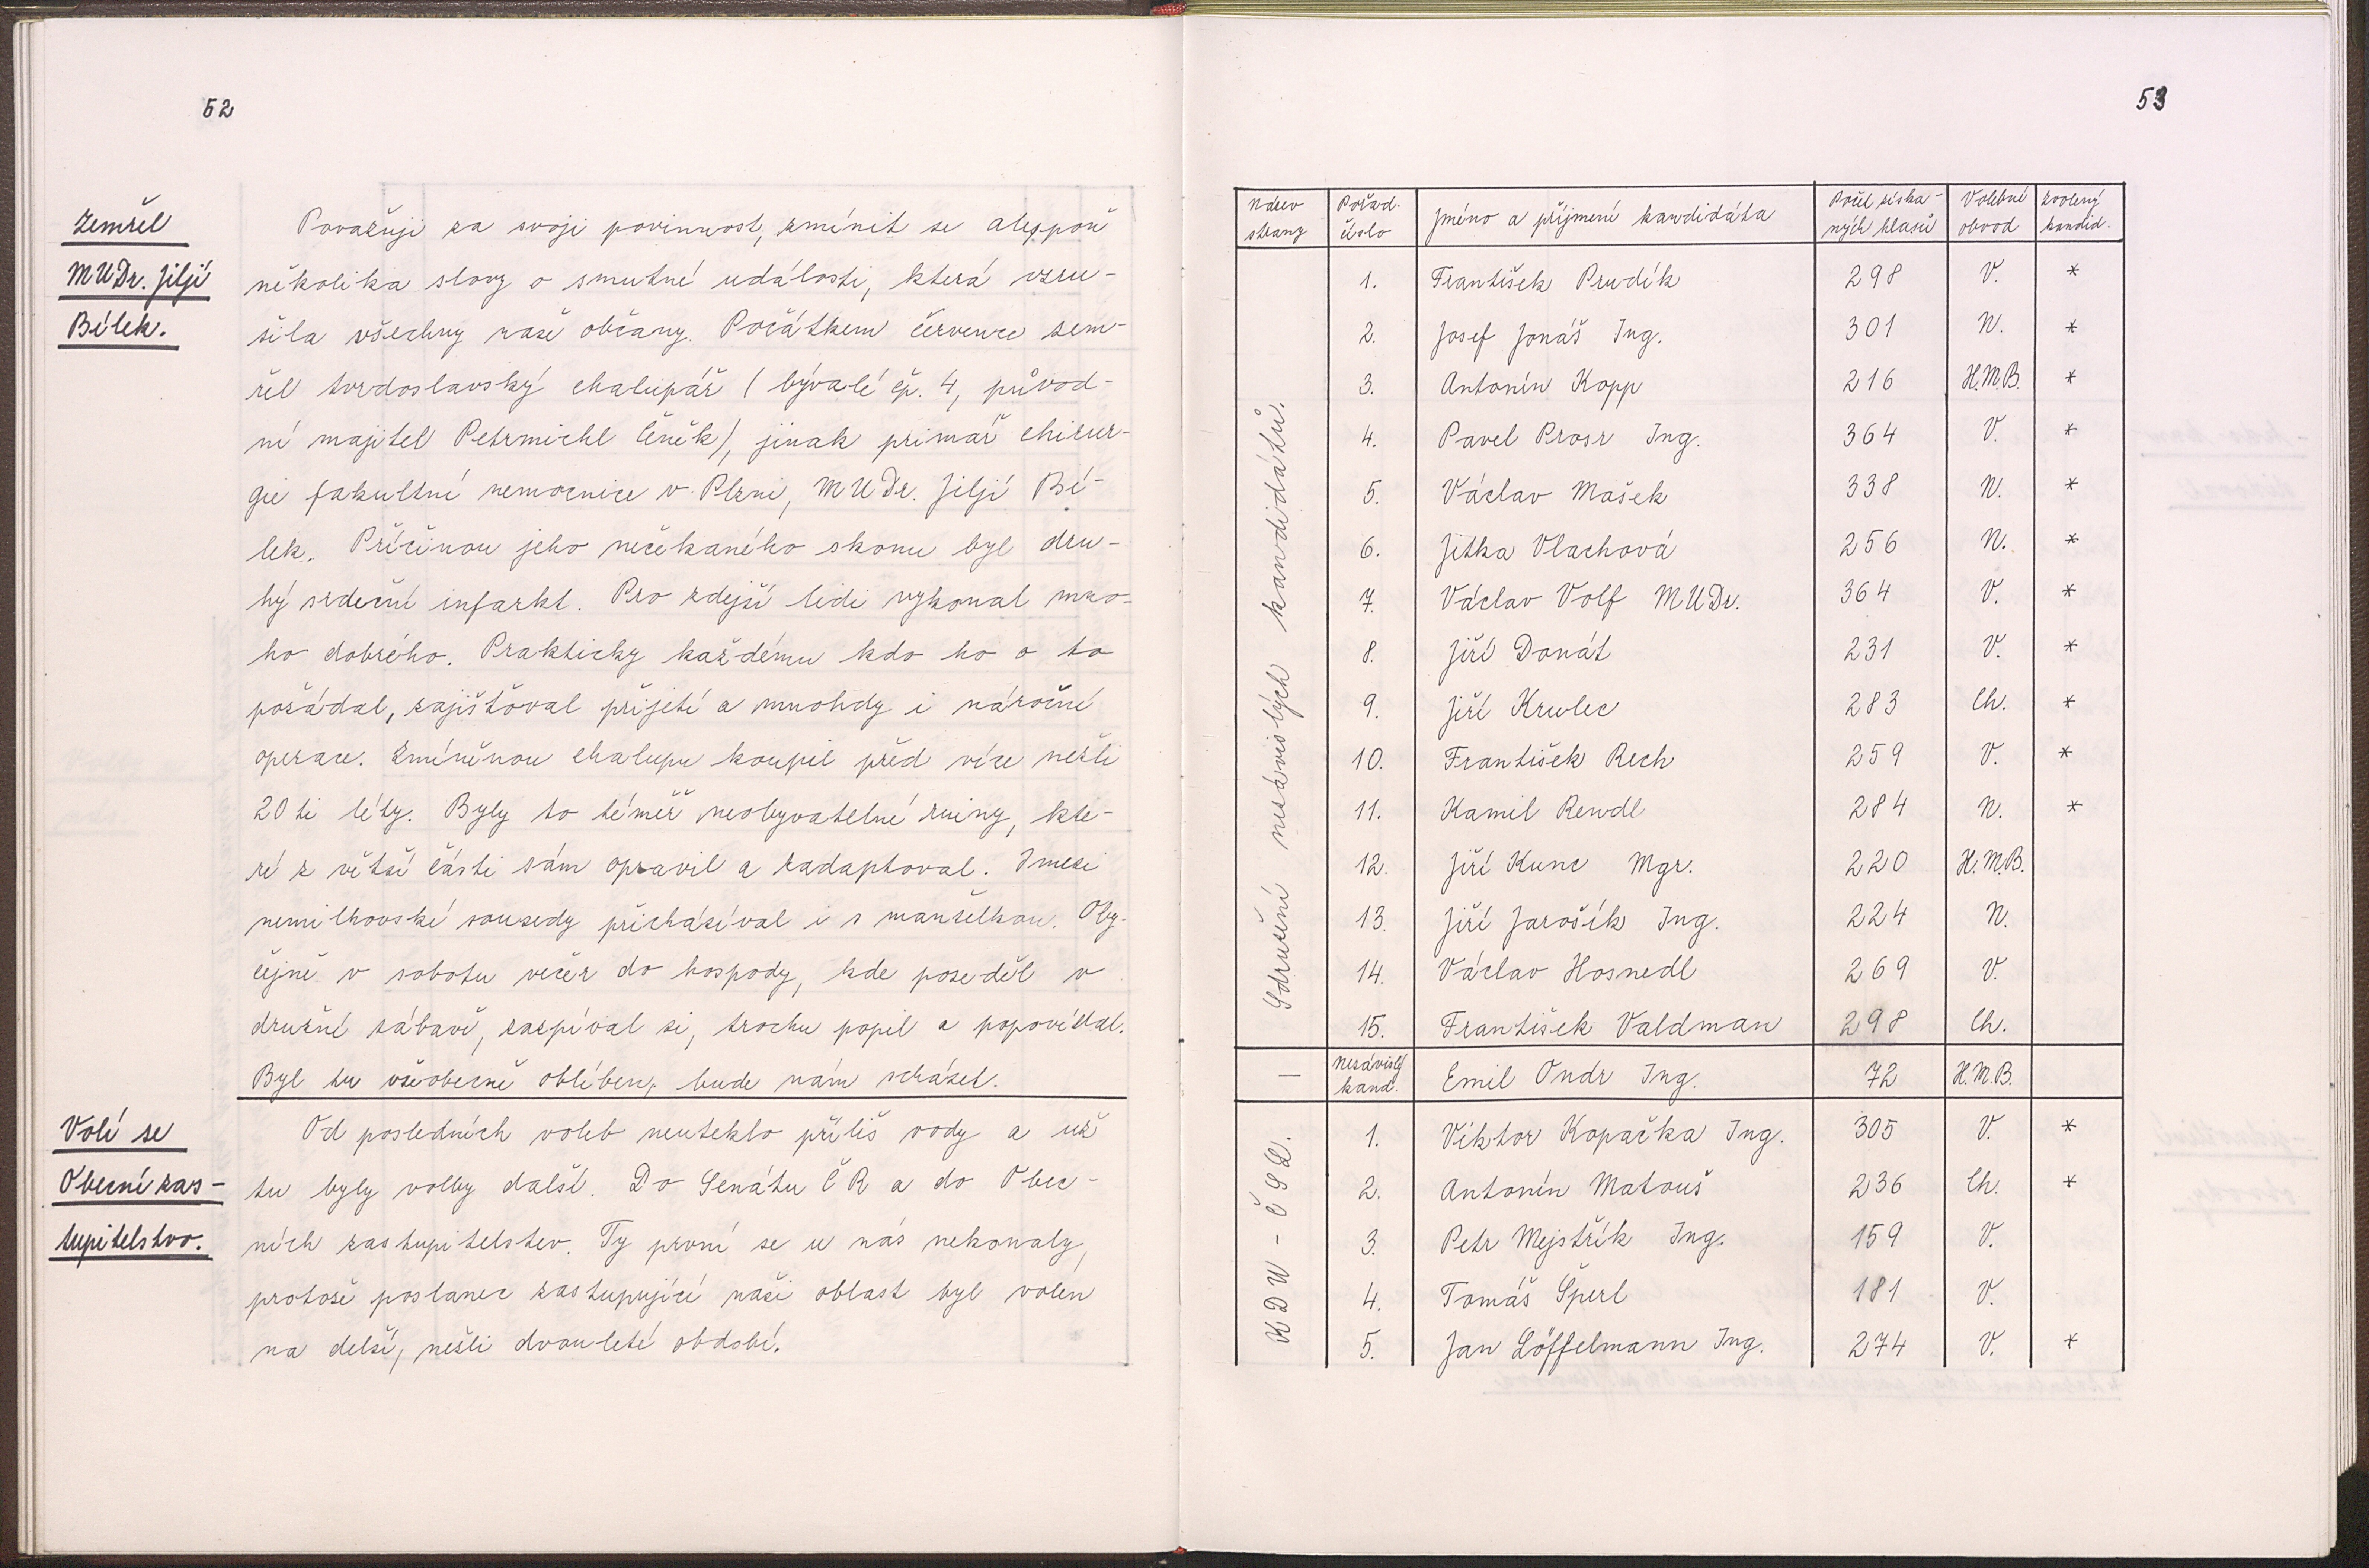 52
Zemřel
MUDr. Jiljí
Bílek.
Považuji za svoji povinnost, zmínit se alespoň
několika slovy o smutné události, která vzru-
šila všechny naše občany. Počátkem července zem-
řel tvrdoslavský chalupář (bývalé čp. 4, původ-
ní majitel Petrmichl Čeněk), jinak primář chirur-
gie fakultní nemocnice v Plzni, MUDr. Jiljí Bí-
lek. Příčinou jeho nečekaného skonu byl dru-
hý srdeční infarkt. Pro zdejší lidi vykonal mno-
ho dobrého. Prakticky každému kdo ho o to
požádal, zajišťoval přijetí a mnohdy i náročné
operace. Zmíněnou chalupu koupil před více nežli
20ti léty. Byly to téměř neobyvatelné ruiny, kte-
ré z větší části sám opravil a zadaptoval. Imezi
nemilkovské sousedy přicházíval i s manželkou. Oby-
čejně v sobotu večer do hospody, kde poseděl v
družné zábavě, zazpíval si, trochu popil a popovídal.
Byl tu všeobecně oblíben, bude nám scházet.
Volí se
Obecní zas-
tupitelstvo.
Od posledních voleb neuteklo příliš vody a už
tu byly volby další. Do Senátu ČR a do Obec-
ních zastupitelstev. Ty první se u nás nekonaly,
protože poslanec zastupující naši oblast byl volen
na delší, nežli dvouleté období.
53
Název strany Pořad. číslo Jméno a příjmení kandidáta Počet získa-ných hlasů Volební obvod zvolený kandid.
Sdružení nezávislých kandidátů.
1. František Prudík 298 V. *
2. Josef Jonáš Ing. 301 N. *
3. Antonín Kopp 216 H.M.B. *
4. Pavel Prosr Ing. 364 V. *
5. Václav Mašek 338 N. *
6. Jitka Vlachová 256 N. *
7. Václav Volf MUDr. 364 V. *
8. Jiří Donát 231 V. *
9. Jiří Krulec 283 Ch. *
10. František Rech 259 V. *
11. Kamil Rendl 284 N. *
12. Jiří Kunc Mgr. 220 H.M.B.
13. Jiří Jarošík Ing. 224 N.
14. Václav Hosnedl 269 V.
15. František Valdman 298 Ch.
— nezávislý kand. Emil Ondr Ing. 72 H.M.B.
KDU - ČSL.
1. Viktor Kopačka Ing. 305 V. *
2. Antonín Matouš 236 Ch. *
3. Petr Mejstřík Ing. 159 V.
4. Tomáš Šperl 181 V.
5. Jan Löffelmann Ing. 274 V. *